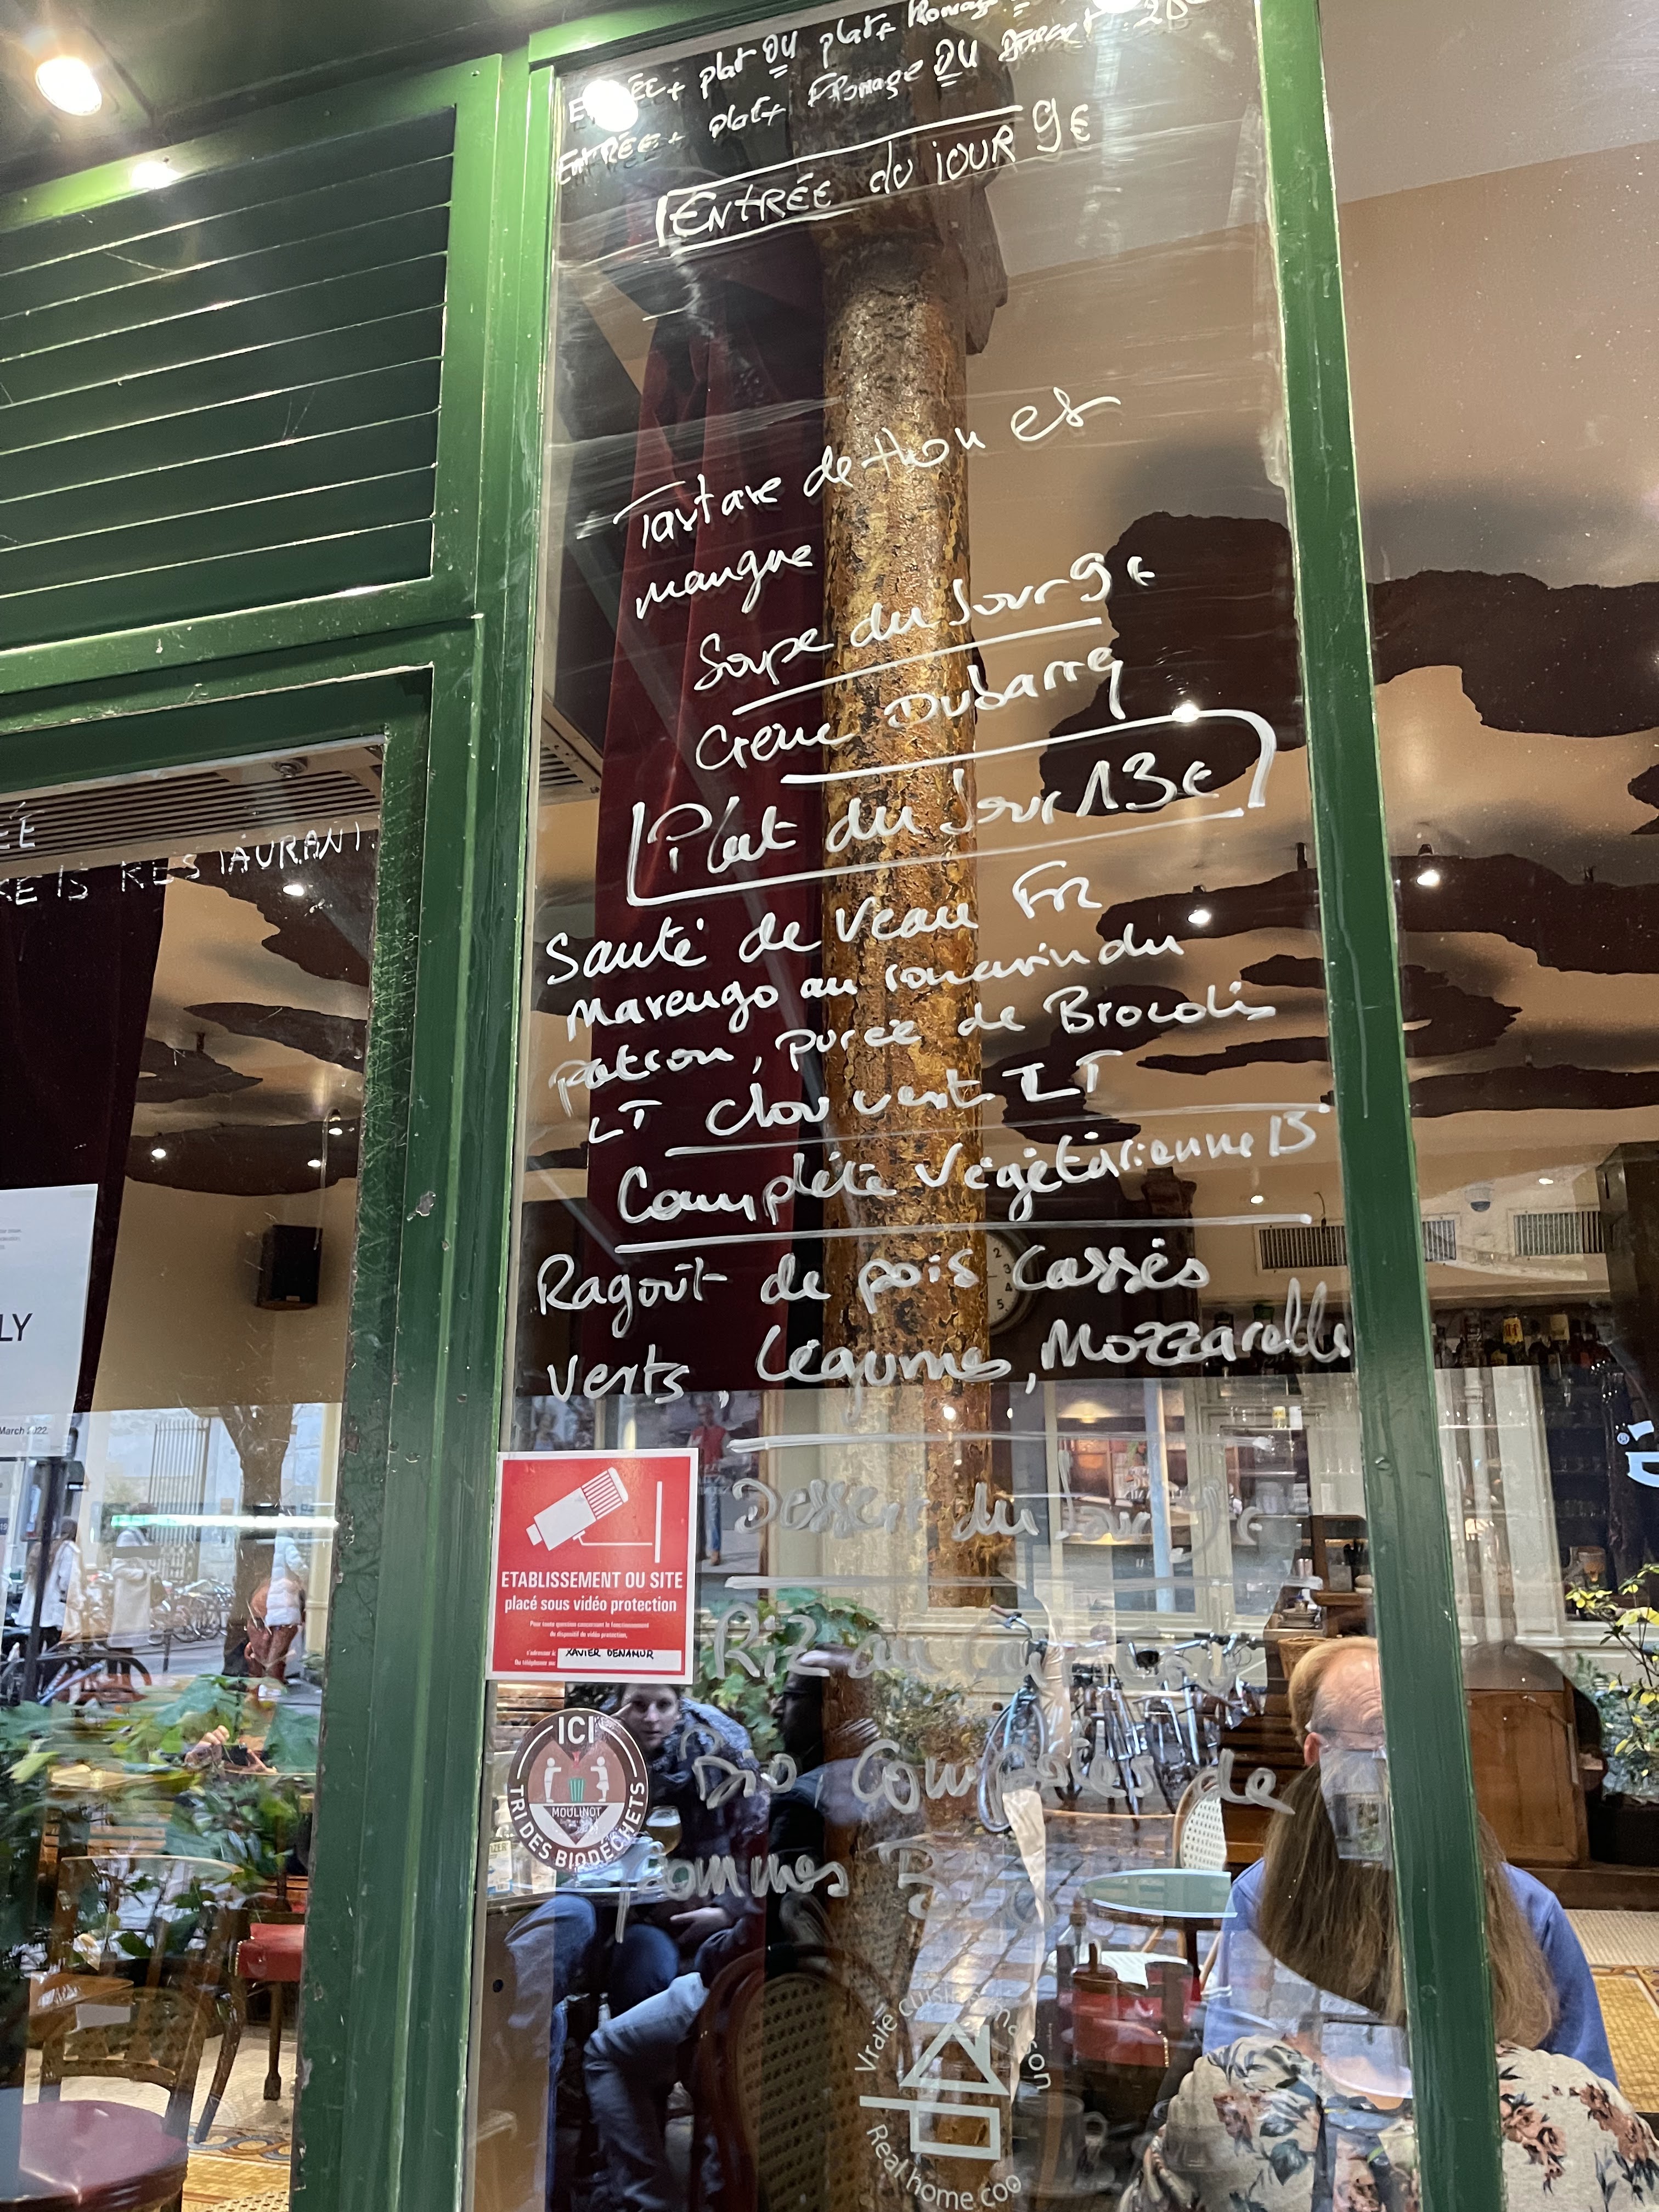 ENTRÉE + plat OU plat + Fromage
ENTRÉE + plat + Fromage OU Dessert
ENTRÉE du JOUR 9€
Tartare de thon et
mangue
Soupe du Jour 9€
Crème Dubarry
Plat du Jour 13€
Sauté de veau FR
Marengo au romarin du
patron, purée de Brocolis
LT chou vert LT
Complète Végétarienne 13
Ragoût de pois Cassés
verts, légumes, Mozzarella
Dessert du Jour 9€
Riz au
Bio, Compotes de
pommes
ÉE
RESTAURANT.
LY
March 2022.
ETABLISSEMENT OU SITE
placé sous vidéo protection
Pour toute question concernant le fonctionnement
du dispositif de vidéo protection,
s'adresser à: XAVIER DENAMUR
Ou téléphoner au:
ICI
MOULINOT
TRI DES BIODÉCHETS
Vraie cuisine maison
Real home coo